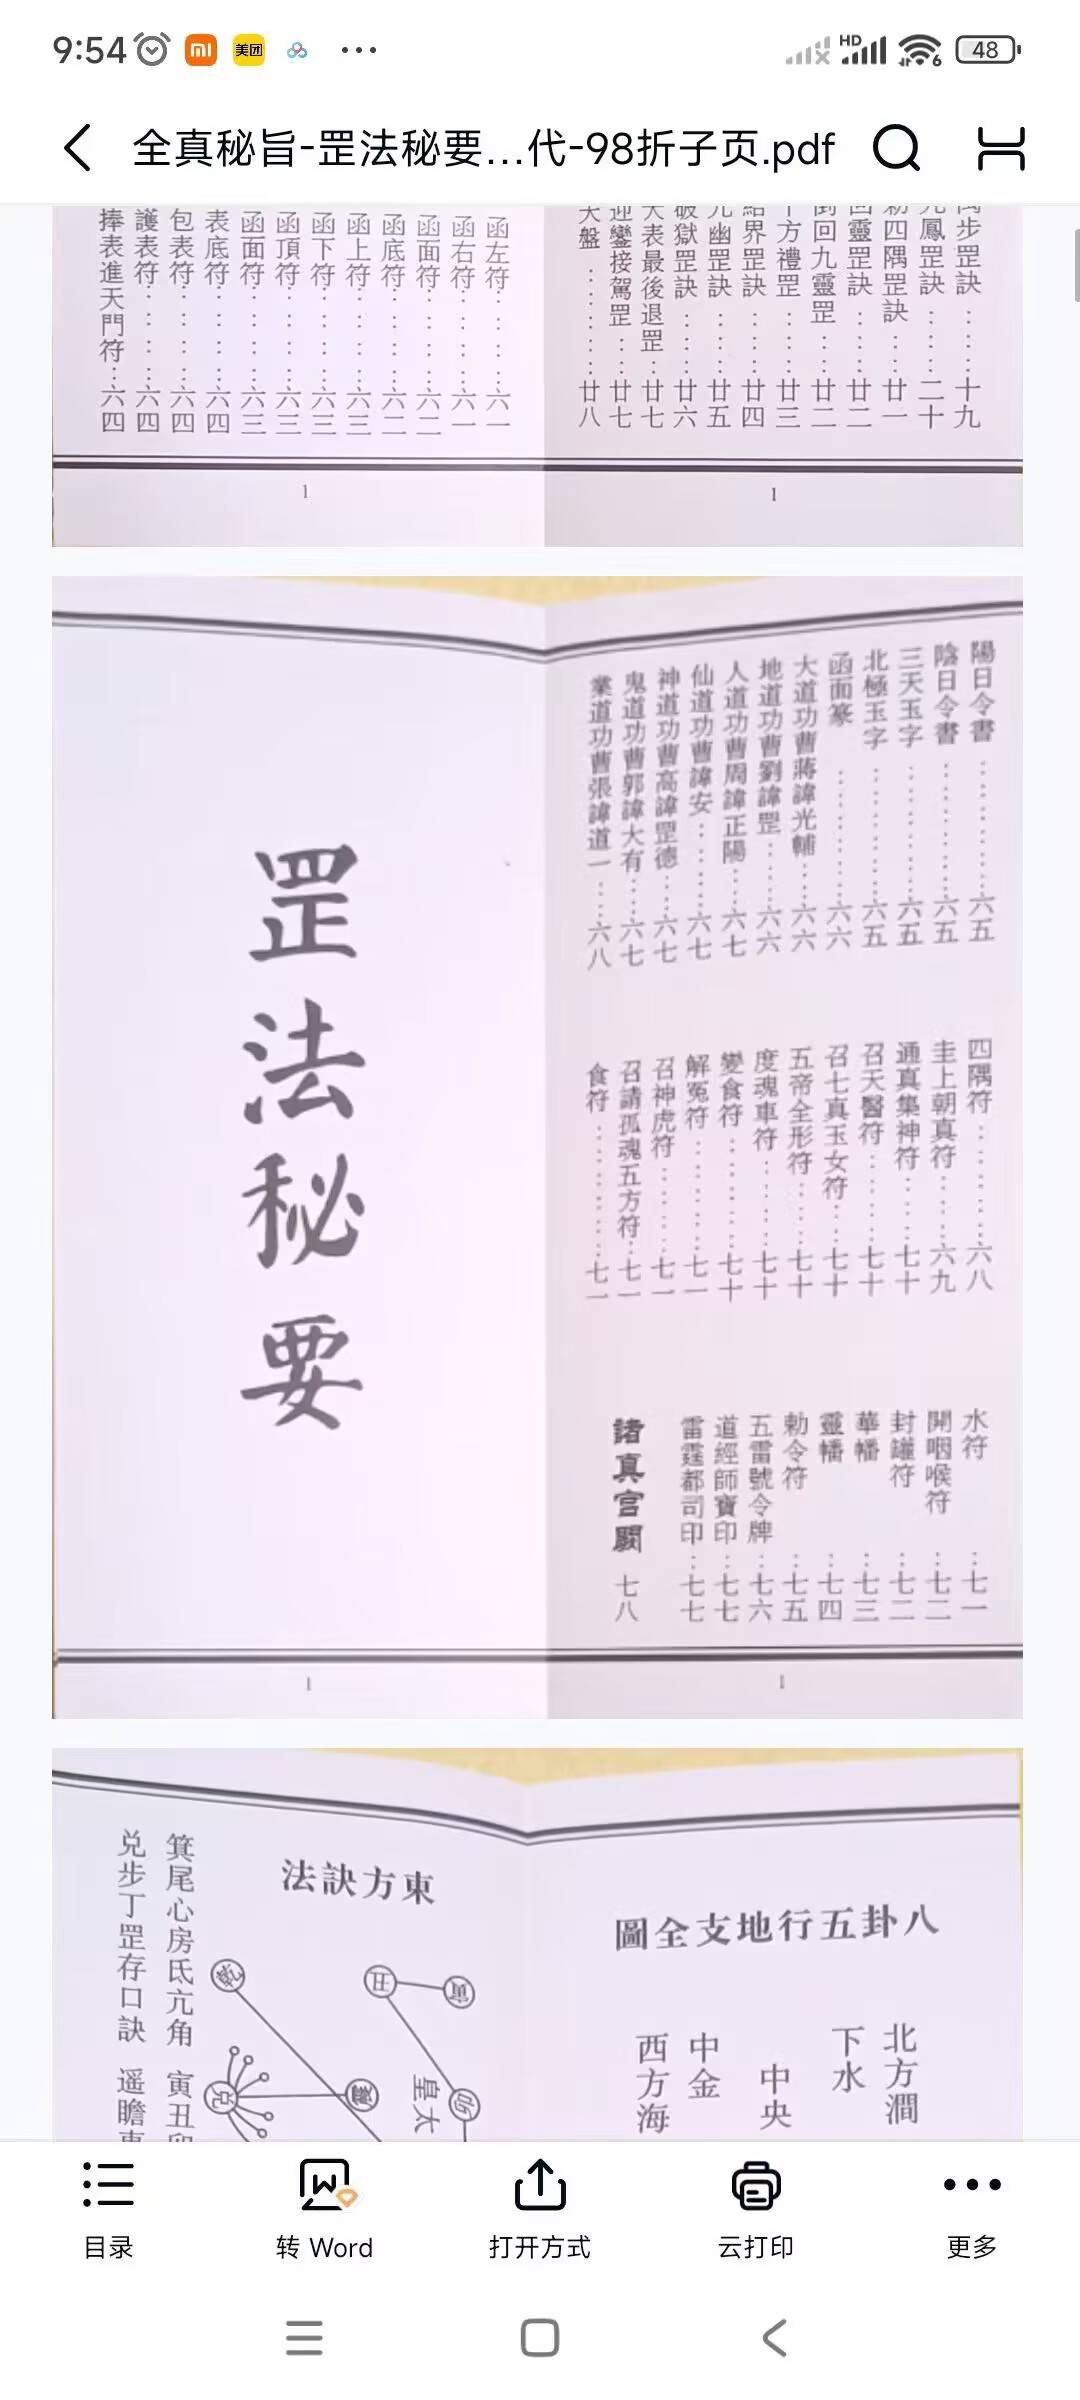 9:54
美团
HD
6
48
全真秘旨-罡法秘要...代-98折子页.pdf
步罡訣......十九
鳳罡訣....二十
四隅罡訣...廿一
靈罡訣....廿二
回九靈罡...廿二
方禮罡....廿三
界罡訣....廿四
幽罡訣....廿五
獄罡訣....廿六
表最後退罡..廿七
迎鑾接駕罡...廿七
天盤.......廿八
函左符......六一
函右符......六一
函面符......六二
函底符......六二
函上符......六三
函下符......六三
函頂符......六三
函面符......六三
表底符......六四
包表符......六四
護表符......六四
捧表進天門符..六四
1
1
陽日令書............六五
陰日令書............六五
三天玉字............六五
北極玉字............六五
函面篆............六六
大道功曹蔣諱光輔....六六
地道功曹劉諱罡......六六
人道功曹周諱正陽...六七
仙道功曹諱安.......六七
神道功曹高諱罡德...六七
鬼道功曹郭諱大有...六七
業道功曹張諱道一...六八
四隅符..........六八
圭上朝真符......六九
通真集神符......七十
召天醫符........七十
召七真玉女符....七十
五帝全形符......七十
度魂車符........七十
變食符..........七十
解冤符..........七一
召神虎符........七一
召請孤魂五方符..七一
食符............七一
水符...七一
開咽喉符...七二
封罐符...七二
華幡...七三
靈幡...七四
勅令符...七五
五雷號令牌...七六
道經師寶印...七七
雷霆都司印...七七
諸真宮闕 七八
罡法秘要
1
1
八卦五行地支全圖
北方澗
下水
中央
中金
西方海
東方訣法
寅
丑
卯
皇太
乾
震
兌
箕尾心房氐亢角 寅丑卯
兑步丁罡存口訣 遥瞻東
目录
转 Word
打开方式
云打印
更多